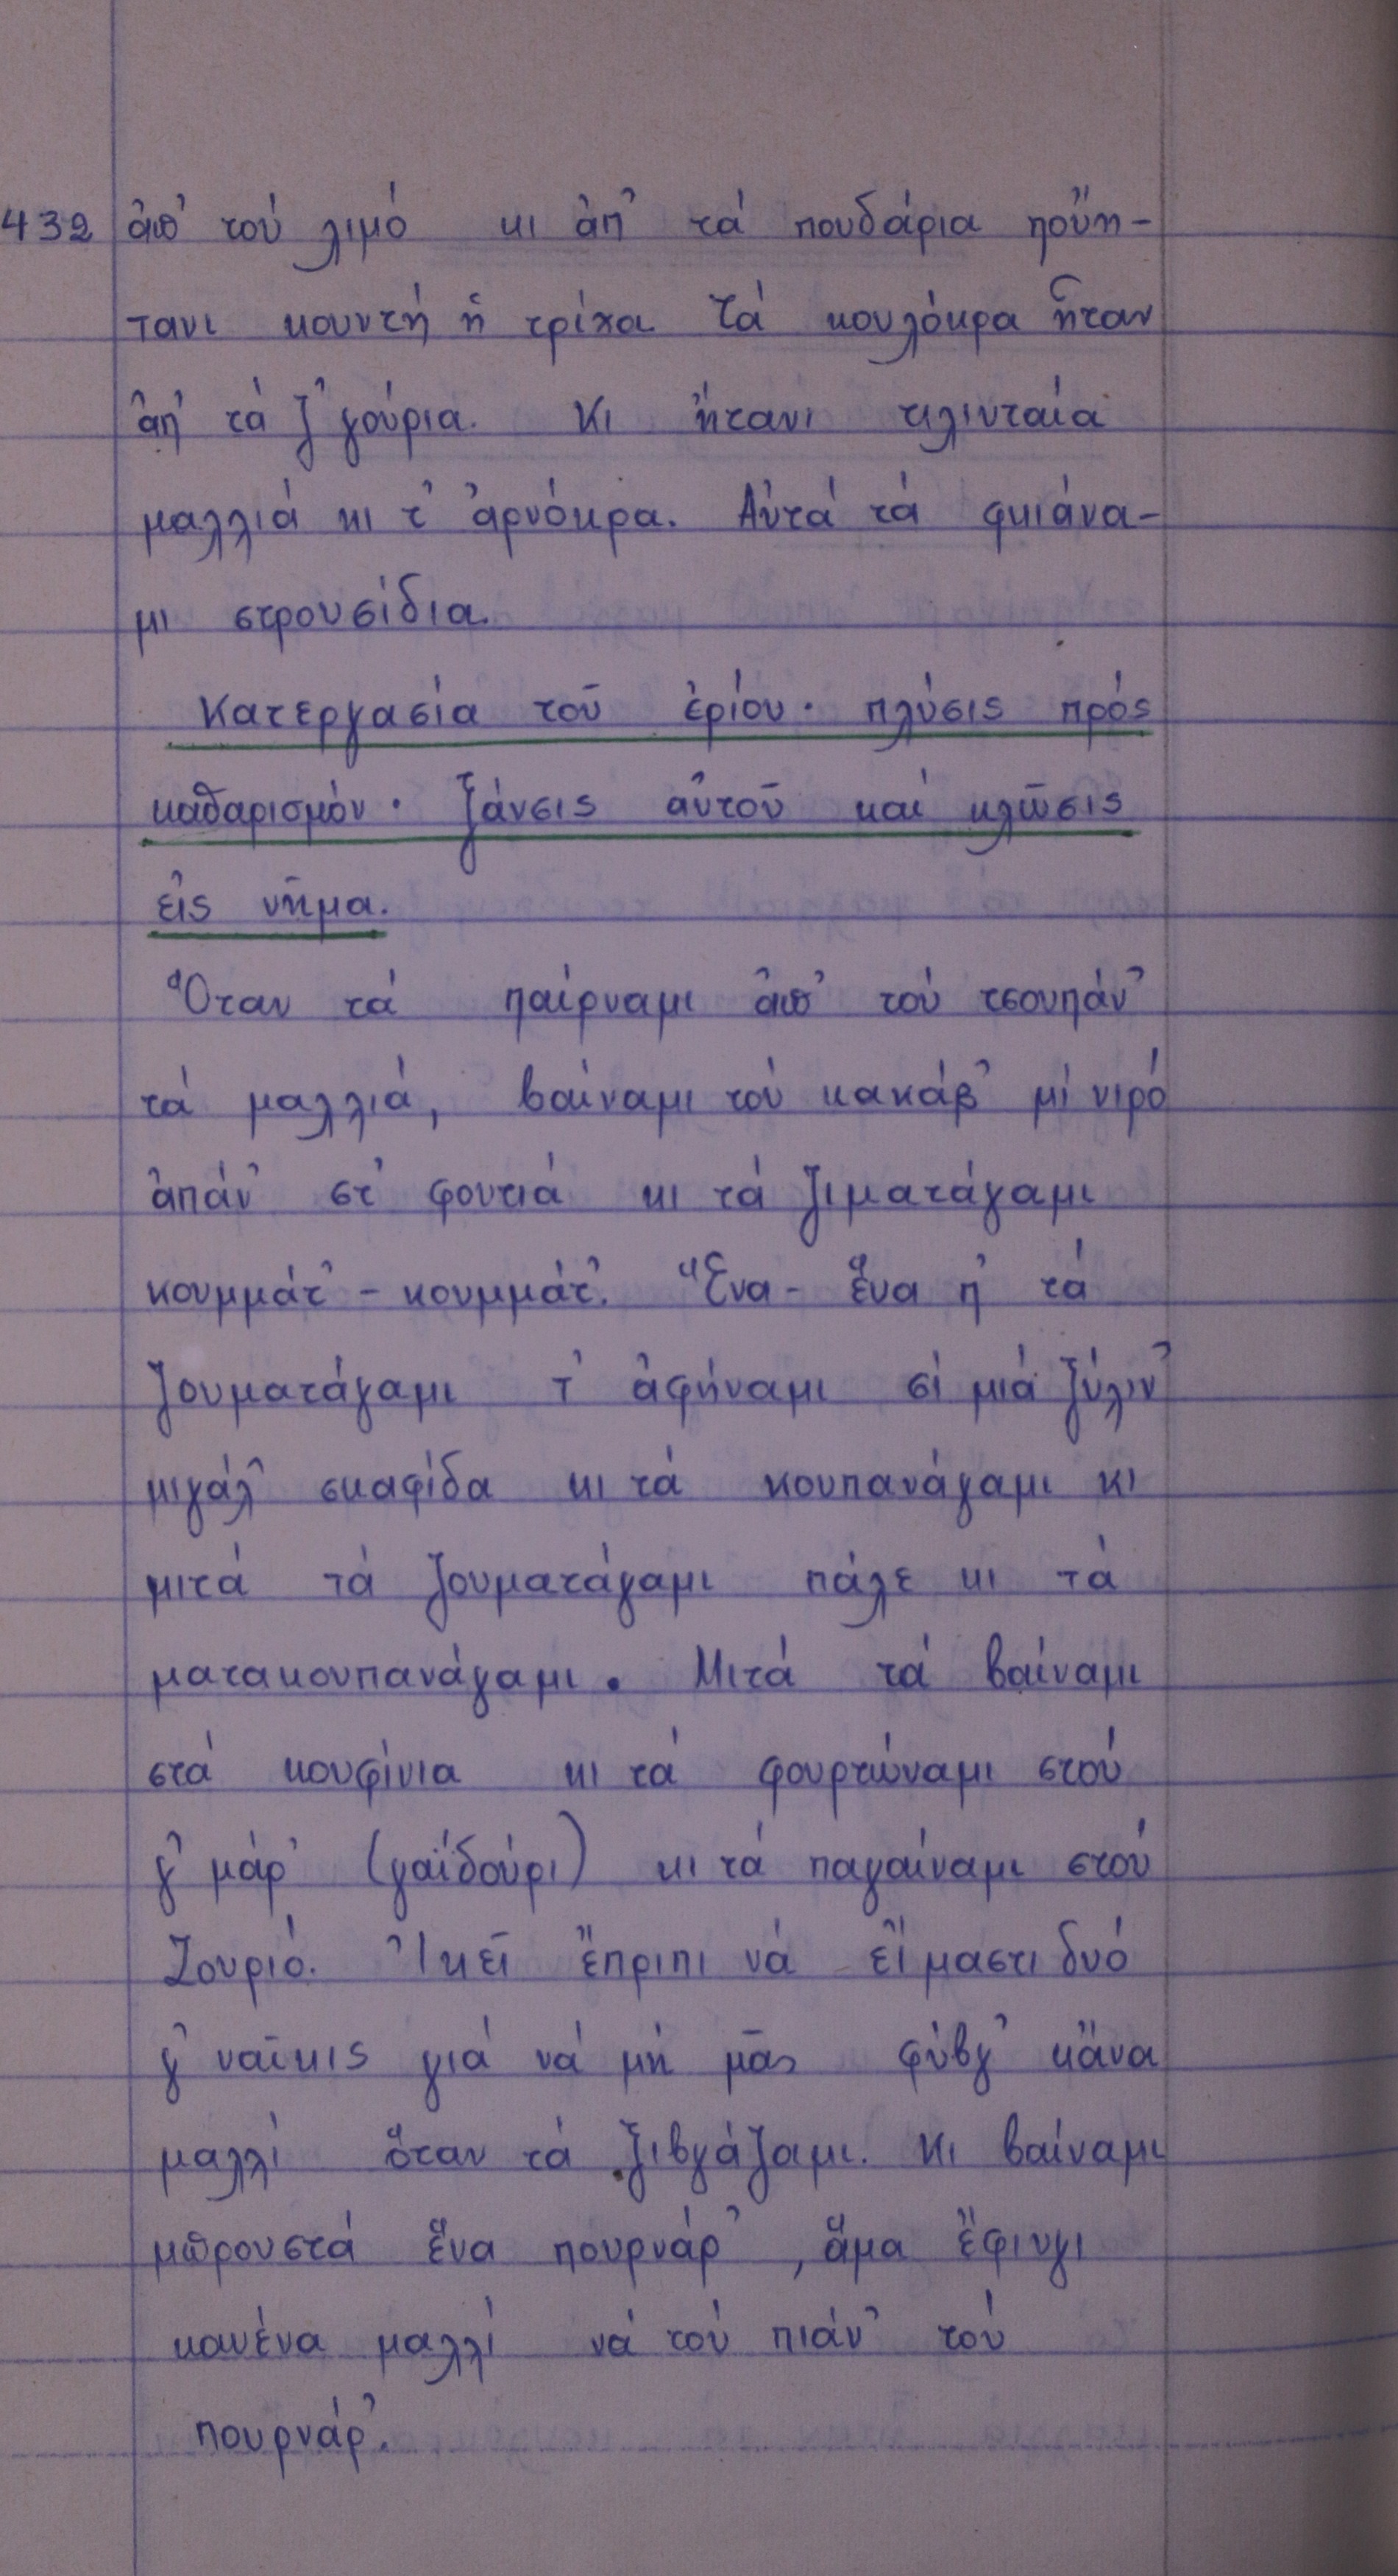 432 ἀπ' τού λιμό κι ἀπ' τά πουδάρια πούη-
τανι κουντή ἡ τρίχα τά κουλόκρα ἦταν
ἀπ' τά ζ'γούρια. Κι ἤτανι τιλινταία
μαλλιά κι τ' ἀρνόκρα. Αὐτά τά φκιάνα-
μι στρουσίδια.
Κατεργασία τοῦ ἐρίου. πλύσις πρός
καθαρισμόν. ξάνσις αὐτοῦ καί κλῶσις
εἰς νῆμα.
Ὅταν τά παίρναμι ἀπ' τού τσουπάν'
τά μαλλιά, βαίναμι τού κακάβ' μί νιρό
ἀπάν' στ' φουτιά κι τά ζιματάγαμι
κουμμάτ' - κουμμάτ'. Ἕνα - ἕνα π' τά
ζουματάγαμι τ' ἀφήναμι σί μιά ξύλιν'
μιγάλ' σκαφίδα κι τά κουπανάγαμι κι
μιτά τά ζουματάγαμι πάλε κι τά
ματακουπανάγαμι. Μιτά τά βαίναμι
στά κουφίνια κι τά φουρτώναμι στού
γ'μάρ' (γαϊδούρι) κι τά παγαίναμι στού
Ζουριό. Ἰκεῖ ἔπριπι νά εἴμαστι δυό
γ'ναῖκις γιά νά μή μᾶς φύβγ' κἄνα
μαλλί ὅταν τά ξιβγάζαμι. Κι βαίναμι
μπρουστά ἕνα πουρνάρ', ἅμα ἔφιυγι
κανένα μαλλί νά τού πιάν' τού
πουρνάρ'.